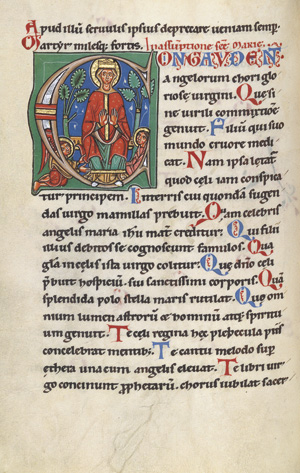 Apud illū seruulis ipsius deprecare ueniam semp.
Martyr milesq; fortis. In assūptione scē marie.
CONGAVDENT
angelorum chori glo
riose uirgini. Que si
ne uirili commixtione
genuit. Filiū qui suo
mundo cruore medi
cat. Nam ipsa letat̄
quod celi iam conspica
tur principem. In terris cui quondā sugen
das uirgo mamillas prebuit. Quam celebris
angelis maria ihū mat̄ creditur. Qui filii
illius debitos se cognoscunt famulos. Qua
gl̄a in celis ista uirgo colitur. Que dn̄o celi
p̄buit hospiciū. sui sanctissimi corporis. Quā
splendida polo stella maris rutilat. Que om
nium lumen astrorū & hominū atq; spiritu
um genuit. Te celi regina hec plebecula piis
concelebrat mentib;. Te cantu melodo sup̄
ethera una cum angelis eleuat. Te libri uir
go concinunt prophetarū. chorus iubilat sacer